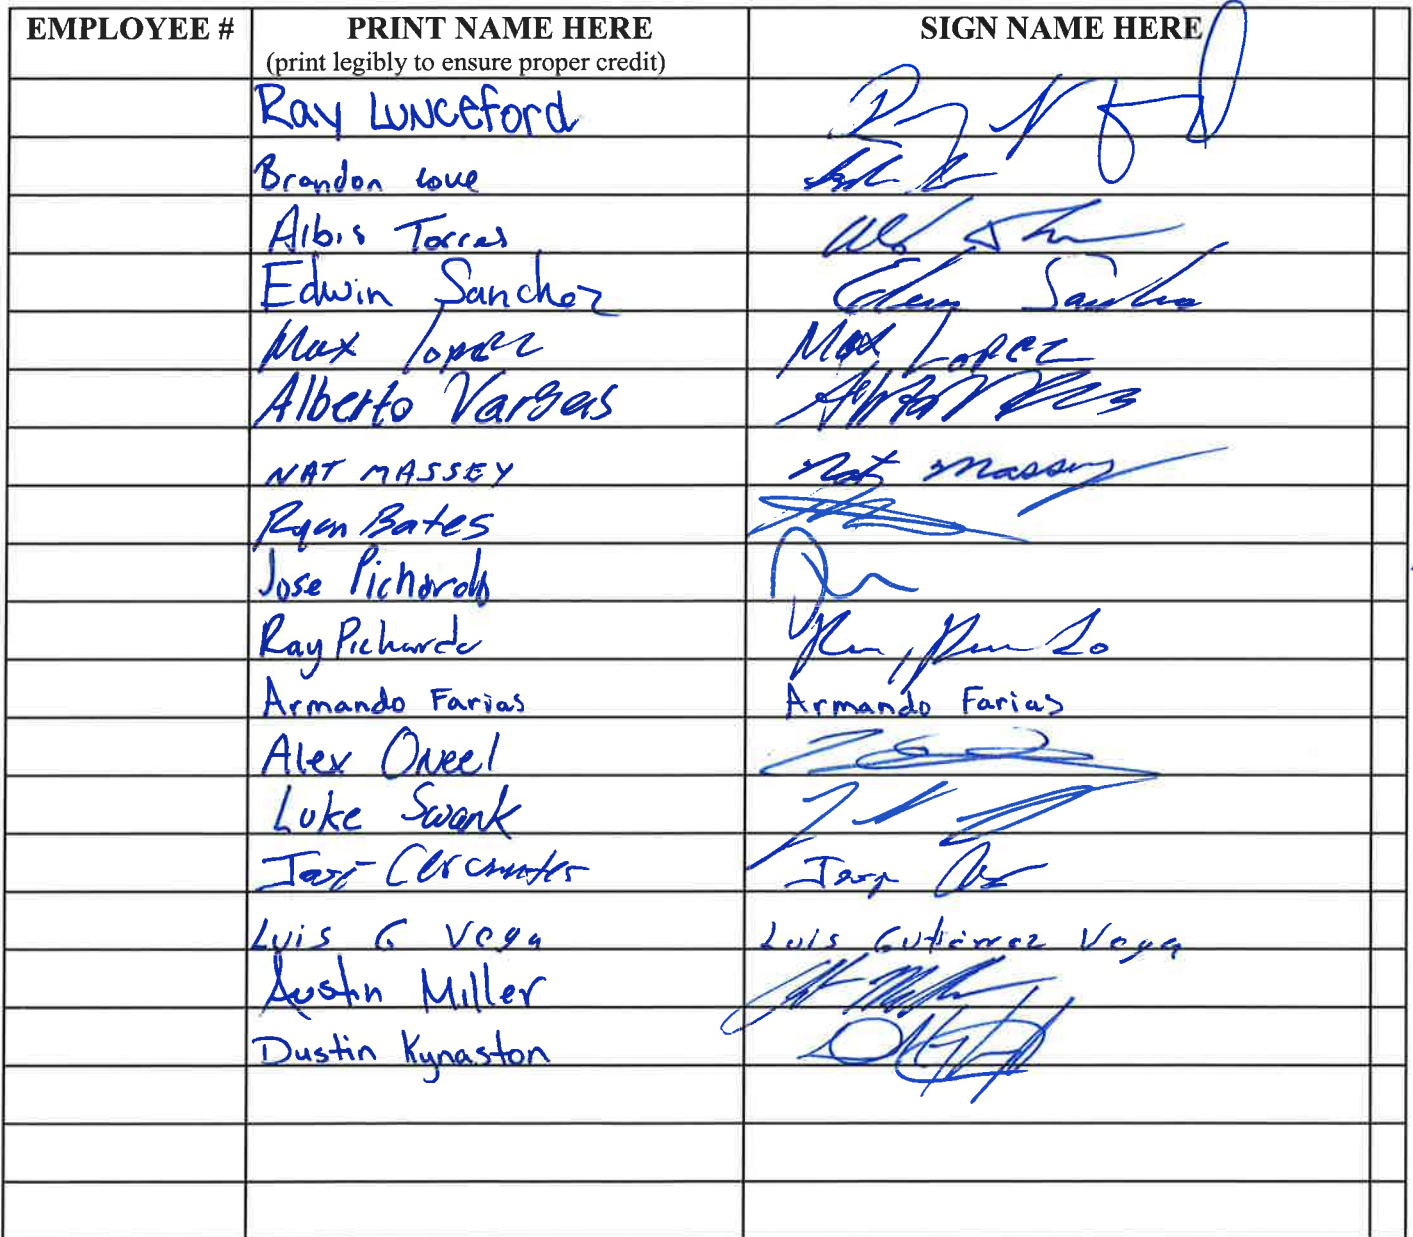 EMPLOYEE # PRINT NAME HERE SIGN NAME HERE
(print legibly to ensure proper credit)
Ray Lunceford
Brandon Love
Albis Torres
Edwin Sanchez Edwin Sanchez
Max Lopez Max Lopez
Alberto Vargas
NAT MASSEY Nat Massey
Ryan Bates
Jose Pichardo
Ray Pichardo
Armando Farias Armando Farias
Alex Oneel
Luke Swank
Luis G Vega Luis Gutierrez Vega
Austin Miller
Dustin Kynaston